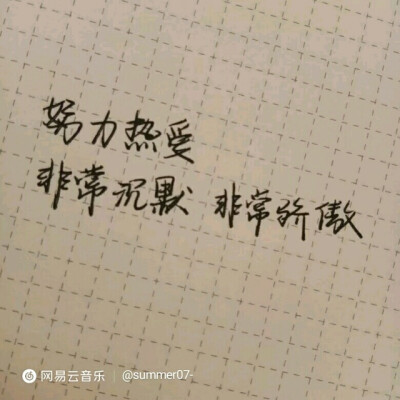 努力热爱
非常沉默 非常骄傲
网易云音乐 @summer07-